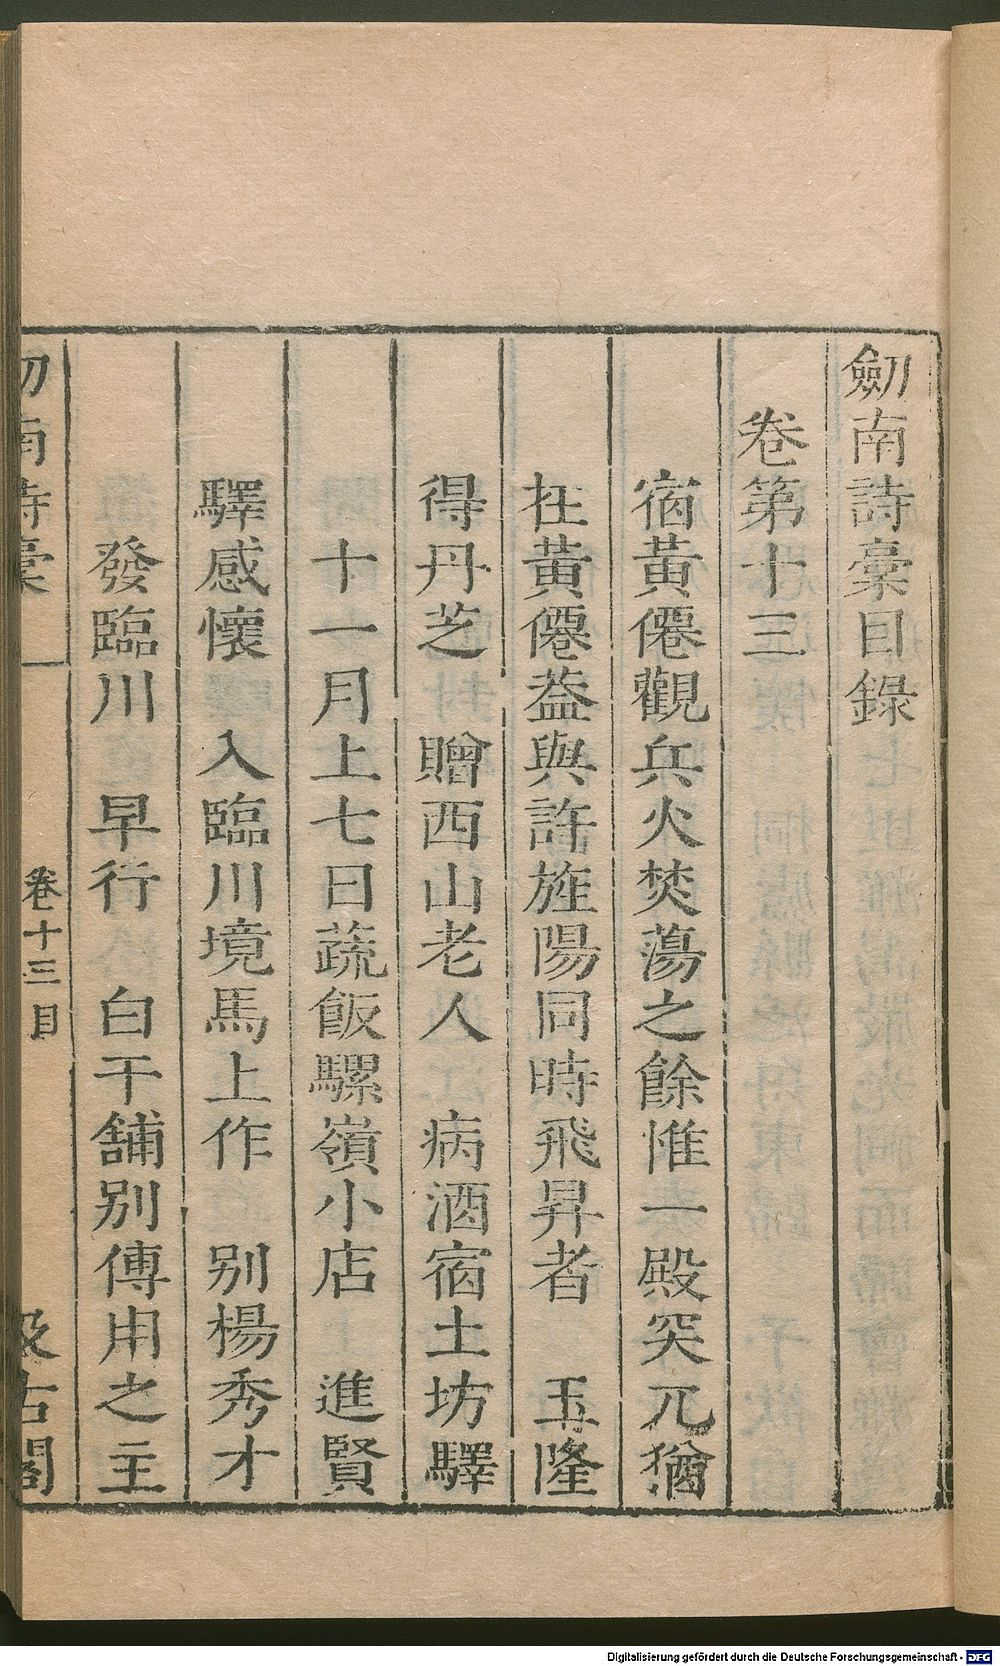 劒南詩稾目錄
卷第十三
宿黃僊觀兵火焚蕩之餘惟一殿突兀猶
在黃僊葢與許旌陽同時飛昇者　玉隆
得丹芝　贈西山老人　病酒宿土坊驛
十一月上七日蔬飯騾嶺小店　進賢
驛感懷　入臨川境馬上作　别楊秀才
發臨川　早行　白干舖别傅用之主
劒南詩稾　卷十三目　汲古閣
Digitalisierung gefördert durch die Deutsche Forschungsgemeinschaft - DFG